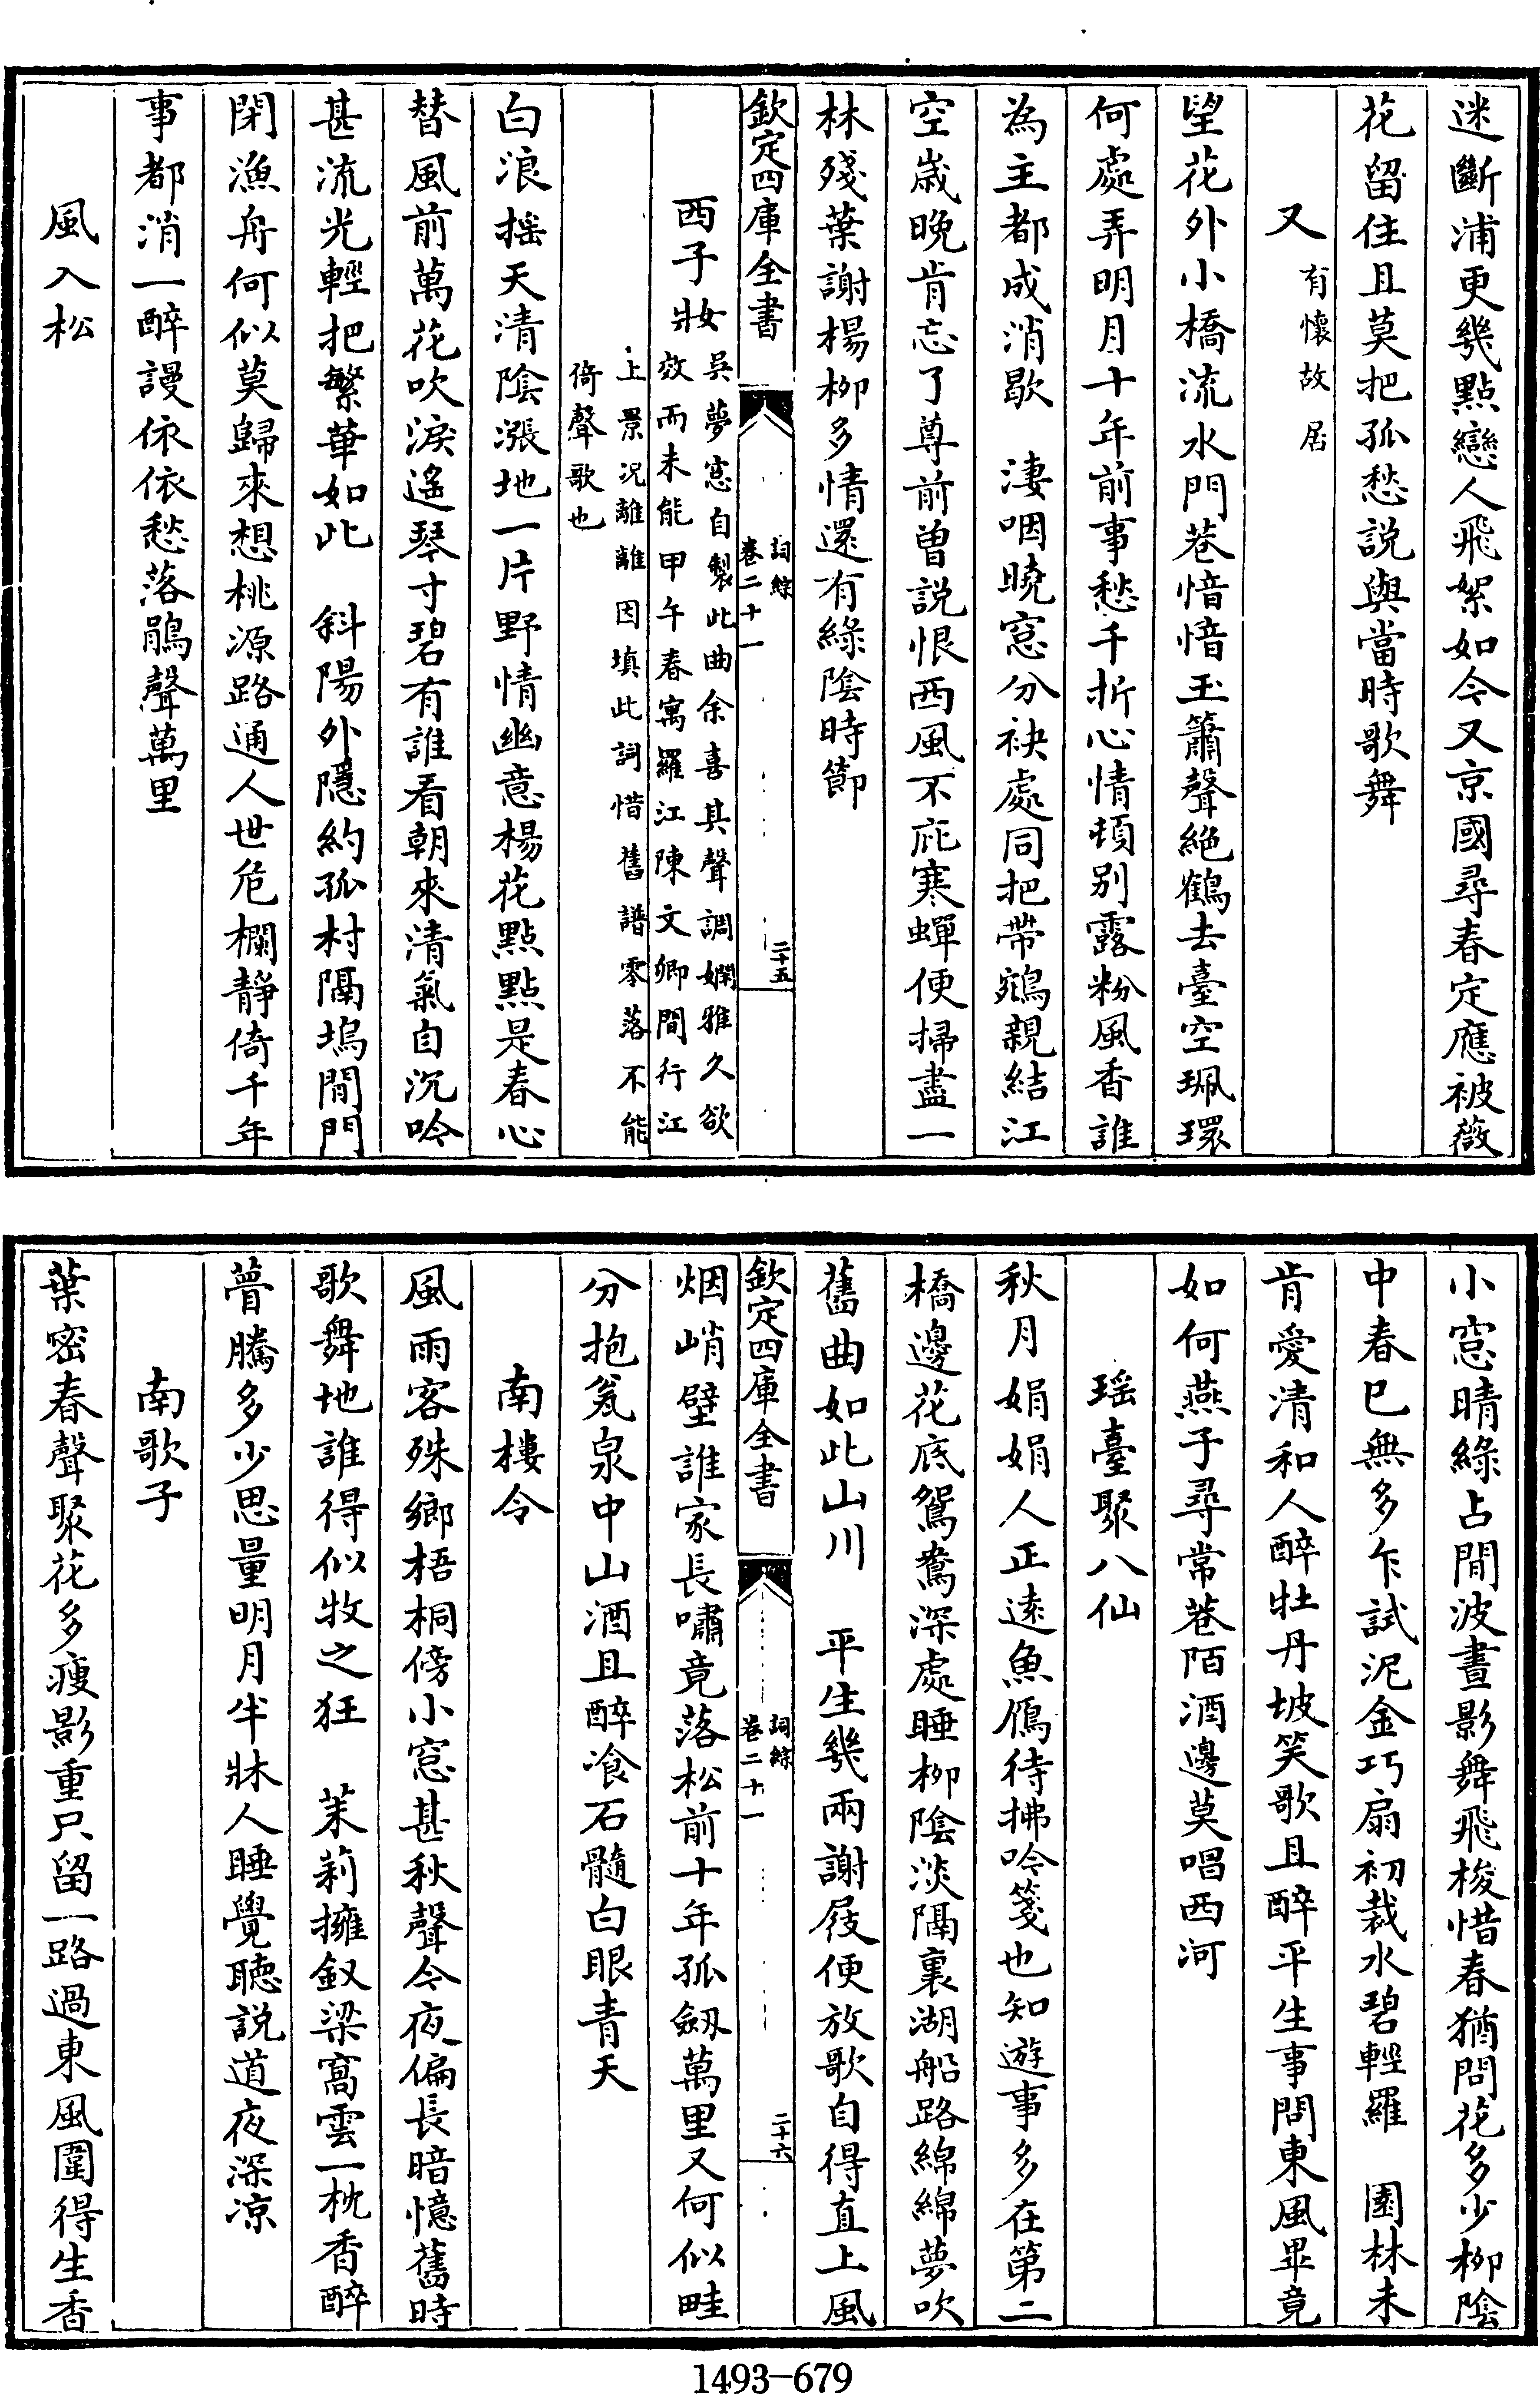 迷斷浦更幾點戀人飛絮如今又京國尋春定應被薇
花留住且莫把孤愁說與當時歌舞
又有懷故居
望花外小橋流水門巷愔愔玉簫聲絕鶴去臺空珮環
何處弄明月十年前事愁千折心情頓别露粉風香誰
為主都成消歇　淒咽曉窓分袂處同把帶鴛親結江
空歲晚肯忘了尊前曾說恨西風不庇寒蟬便掃盡一
林殘葉謝楊栁多情還有綠陰時節
欽定四庫全書　詞綜　卷二十一　二十五
西子妝吳夢窓自製此曲余喜其聲調嫻雅久欲
效而未能甲午春寓羅江陳文卿間行江
上景況離離因填此詞惜舊譜零落不能
倚聲歌也
白浪摇天清陰漲地一片野情幽意楊花點點是春心
替風前萬花吹淚遥琴寸碧有誰看朝來清氣自沉吟
甚流光輕把繁華如此　斜陽外隱約孤村隔塢閒門
閉漁舟何似莫歸來想桃源路通人世危欄静倚千年
事都消一醉謾依依愁落鵑聲萬里
風入松
小窓晴綠占間波晝影舞飛梭惜春猶問花多少栁陰
中春已無多乍試泥金巧扇初裁水碧輕羅　園林未
肯愛清和人醉牡丹坡笑歌且醉平生事問東風畢竟
如何燕子尋常巷陌酒邊莫唱西河
瑶臺聚八仙
秋月娟娟人正逺魚鴈待拂吟箋也知遊事多在第二
橋邊花底鴛鴦深處睡栁陰淡隔裏湖船路綿綿夢吹
舊曲如此山川　平生幾兩謝屐便放歌自得直上風
烟峭壁誰家長嘯竟落松前十年孤劔萬里又何似畦
分抱瓮泉中山酒且醉飡石髓白眼青天
欽定四庫全書　詞綜　卷二十一　二十六
南樓令
風雨客殊鄉梧桐傍小窓甚秋聲今夜偏長暗憶舊時
歌舞地誰得似牧之狂　茉莉擁釵梁窩雲一枕香醉
瞢騰多少思量明月半牀人睡覺聽説道夜深凉
南歌子
葉密春聲聚花多瘦影重只留一路過東風圍得生香
1493-679